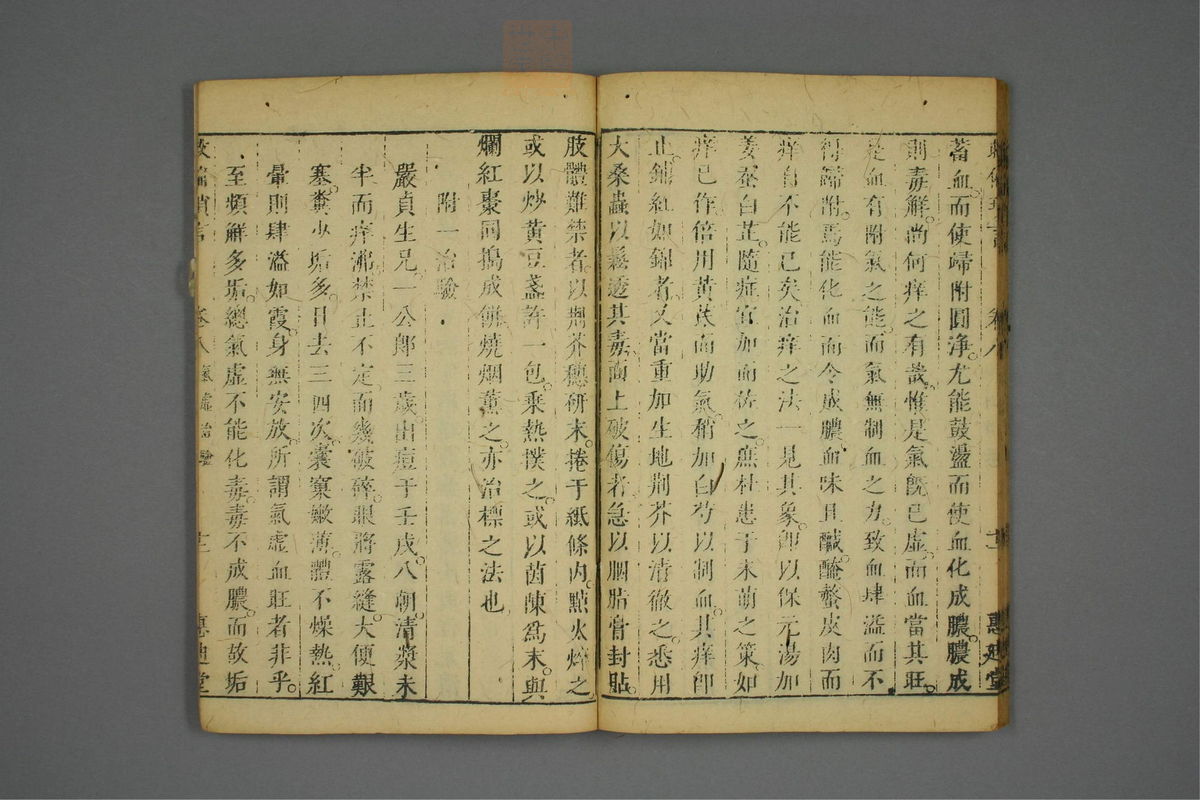 蓄血而使歸附圓淨尤能鼓盪而使血化成膿膿成
則毒解尚何痒之有哉惟是氣既已虛而血當其旺
是血有附氣之能而氣無制血之力致血肆溢而不
得歸附焉能化血而令成膿血味且鹹醃螫皮肉而
痒自不能已矣治痒之法一見其象卽以保元湯加
姜蚕白芷隨症宜加而佐之庶杜患于未萌之策如
痒已作倍用黃芪而助氣稍加白芍以制血其痒卽
止鋪紅如錦者又當重加生地荆芥以清徹之悉用
大桑蟲以鬆透其毒面上破傷者急以胭脂膏封貼
肢體難禁者以荆芥穗研末捲于紙條內點火焠之
或以炒黃豆盞許一包乘熱撲之或以茵陳爲末與
爛紅棗同搗成餅燒烟薰之亦治標之法也
附一治驗
嚴貞生兄一公郎三歲出痘于壬戌八朝清漿未
半而痒沸禁止不定面幾破碎眼將露縫大便艱
塞糞少垢多日去三四次囊窠嫩薄體不燥熱紅
暈則肆溢如霞身無安放所謂氣虛血旺者非乎
至頻解多垢總氣虛不能化毒毒不成膿而故垢
卷八 氣虛治驗 十二 惠迪堂